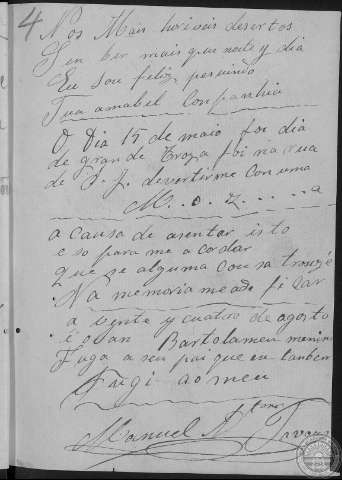 4
Nos Mais horiveis desertos
Sen ber mais que noite y dia
Eu sou feliz, pesuindo
Tua amabel Companhia
O Dia 15 de maio foe dia
de grande troza foi na rua
de S. J. devertirme con uma
M. o. z.....a
a causa de asentar isto
e so para me acordar
que se alguma cousa
Na memoria me ade ficar
a vente y cuatro de agosto
é San Bartolameu menino
Fuga a seu pai que eu tanben
Fugi ao meu
Manuel Tavares